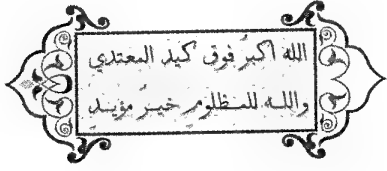 الله اكبرُ فوق كيد المعتدي
والله للمظلومِ خيرُ مؤيدِ